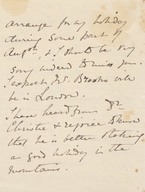 arrange for my holiday
during some part of
August & I should be very
sorry indeed to miss you.
I expect Mrs Brooks will
be in London.
I have heard from Dr
Christie & rejoice to know
that he is better & taking
a good holiday in the
mountains.